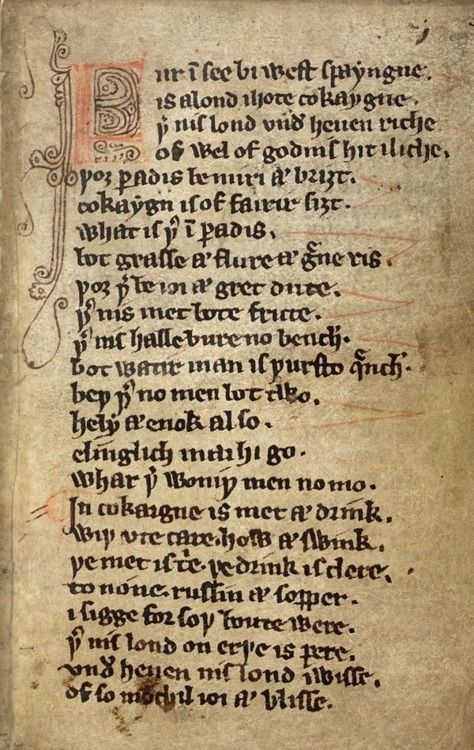 Fur ī see bi west spayngne.
is alond ihote cokaygne.
þ͛ nis lond vnd͛ heuen riche
of wel of godnis hit iliche.
þoȝ ꝑadis be miri & briȝt.
cokaygn is of fairir siȝt.
what is þ͛ ī ꝑadis.
bot grasse & flure & g͛ne ris.
þoȝ þ͛ be ioi & gret dute.
þ͛ nis met bote frute.
þ͛ nis halle bure no bench.
bot watir man is þursto q͛nch.
beþ þ͛ no men bot two.
hely & enok also.
elinglich mai hi go.
whar þ͛ woniþ men no mo.
In cokaigne is met & drink.
wiþ vte care. how & swink.
þe met is t͛e. þe drink is clere.
to none. russin & sopper.
i sigge for soþ boute were.
þ͛ nis lond on erþe is pere.
vnd͛ heuen nis lond iwisse.
of so mochil ioi & blisse.